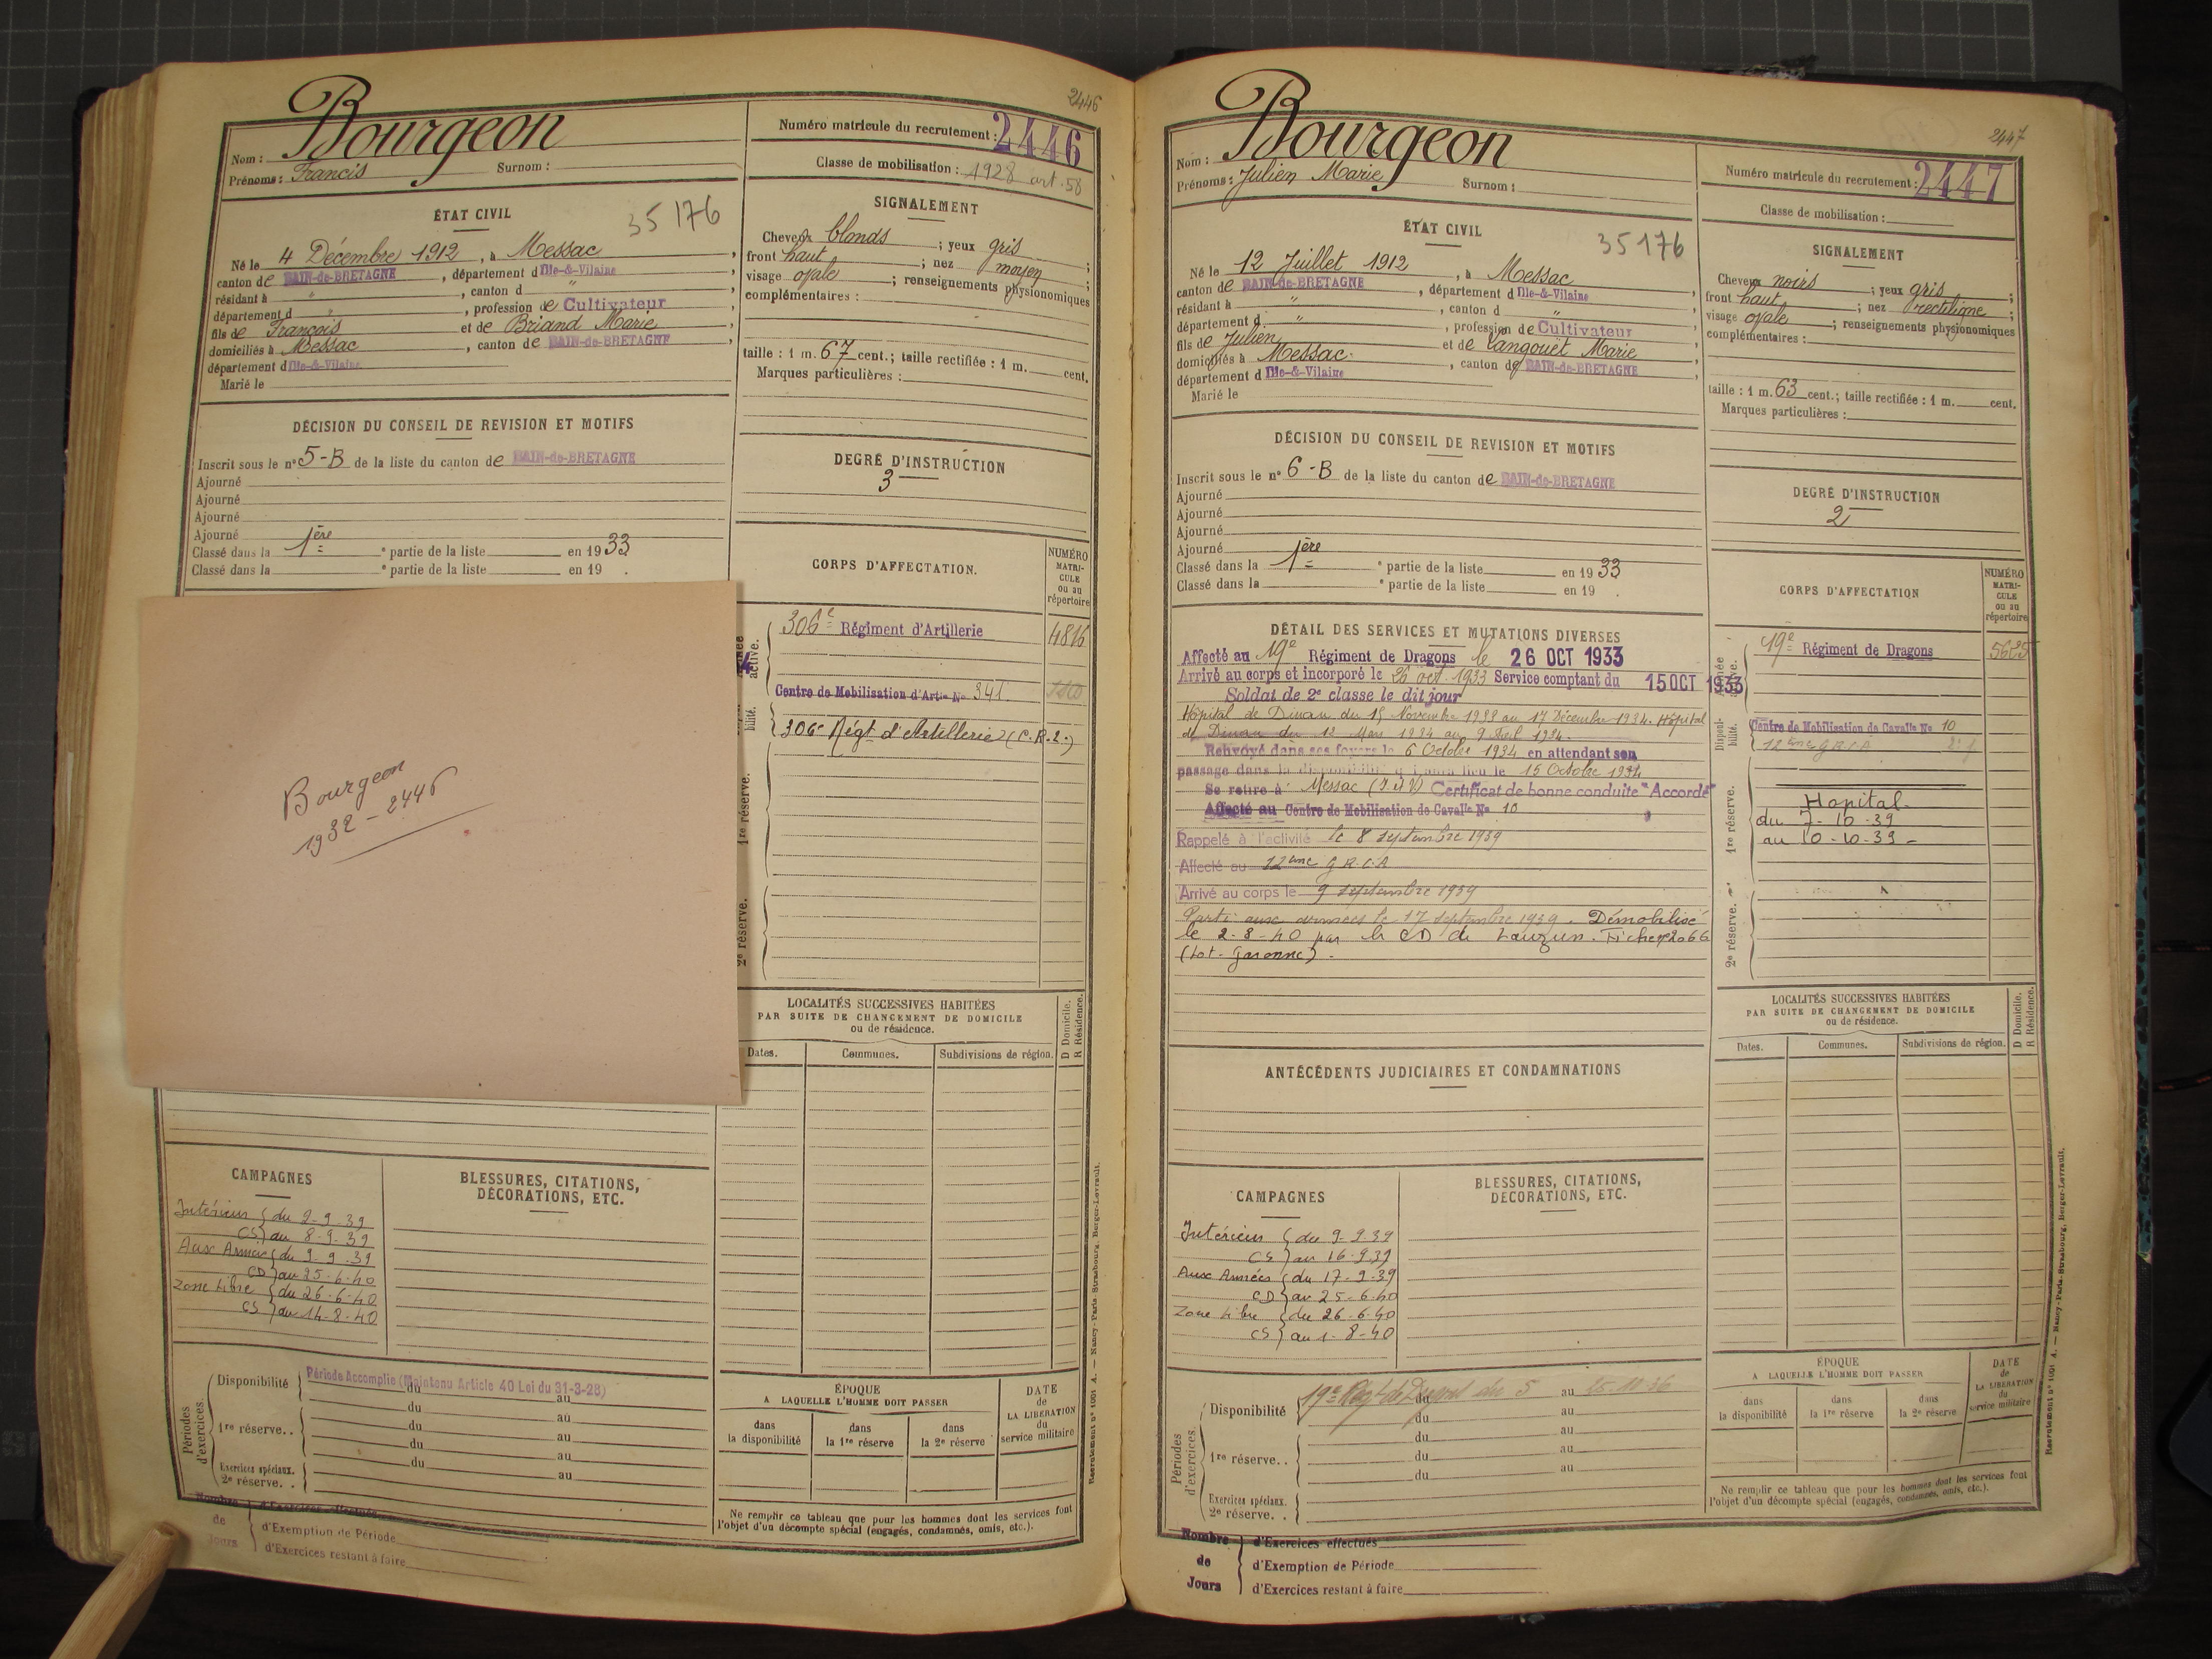 2446
Nom : Bourgeon
Prénoms : Francis Surnom :
Numéro matricule du recrutement : 2446
Classe de mobilisation : 1928 art. 58
ÉTAT CIVIL
35176
Né le 4 Décembre 1912, à Messac,
canton de BAIN-de-BRETAGNE, département d'Ille-&-Vilaine
résidant à ", canton d "
département d ", profession de Cultivateur
fils de François et de Briand Marie,
domiciliés à Messac, canton de BAIN-de-BRETAGNE,
département d'Ille-&-Vilaine
Marié le
SIGNALEMENT
Cheveux blonds ; yeux gris ;
front haut ; nez moyen ;
visage ovale ; renseignements physionomiques
complémentaires :
taille : 1 m. 67 cent.; taille rectifiée : 1 m. cent.
Marques particulières :
DÉCISION DU CONSEIL DE REVISION ET MOTIFS
Inscrit sous le n° 5-B de la liste du canton de BAIN-de-BRETAGNE
Ajourné
Ajourné
Ajourné
Ajourné
Classé dans la 1ère e partie de la liste en 1933
Classé dans la e partie de la liste en 19 .
DEGRÉ D'INSTRUCTION
3
CORPS D'AFFECTATION.
NUMÉRO MATRI-CULE ou au répertoire
306e Régiment d'Artillerie 4816
active.
Centre de Mobilisation d'Artie No 341
bilité.
306e Régt d'Artillerie (C.R.2.)
1re réserve.
2e réserve.
Bourgeon
1932 - 2446
LOCALITÉS SUCCESSIVES HABITÉES
PAR SUITE DE CHANGEMENT DE DOMICILE
ou de résidence.
D Domicile.
R Résidence.
Dates. Communes. Subdivisions de région.
CAMPAGNES
Intérieur du 2-9-39
CS au 8-9-39
Aux Armées du 9-9-39
CD au 25-6-40
Zone Libre du 26-6-40
CS au 14-8-40
BLESSURES, CITATIONS,
DÉCORATIONS, ETC.
Périodes d'exercices.
Disponibilité Période Accomplie (Maintenu Article 40 Loi du 31-3-28)
du au
du au
1re réserve.. du au
du au
du au
Exercices spéciaux.
2e réserve. .
ÉPOQUE
A LAQUELLE L'HOMME DOIT PASSER
dans la disponibilité
dans la 1re réserve
dans la 2e réserve
DATE de LA LIBÉRATION du service militaire
Ne remplir ce tableau que pour les hommes dont les services font
l'objet d'un décompte spécial (engagés, condamnés, omis, etc.).
Nombre de Jours
d'Exercices effectués
d'Exemption de Période
d'Exercices restant à faire
Recrutement n° 1001 A. — Nancy-Paris-Strasbourg, Berger-Levrault.
2447
Nom : Bourgeon
Prénoms : Julien Marie Surnom :
Numéro matricule du recrutement : 2447
Classe de mobilisation :
ÉTAT CIVIL
35176
Né le 12 Juillet 1912, à Messac
canton de BAIN-de-BRETAGNE, département d'Ille-&-Vilaine
résidant à ", canton d "
département d ", profession de Cultivateur
fils de Julien et de Langouët Marie
domiciliés à Messac, canton de BAIN-de-BRETAGNE
département d Ille-&-Vilaine
Marié le
SIGNALEMENT
Cheveux noirs ; yeux gris ;
front haut ; nez rectiligne ;
visage ovale ; renseignements physionomiques
complémentaires :
taille : 1 m. 63 cent.; taille rectifiée : 1 m. cent.
Marques particulières :
DÉCISION DU CONSEIL DE REVISION ET MOTIFS
Inscrit sous le n° 6-B de la liste du canton de BAIN-de-BRETAGNE
Ajourné
Ajourné
Ajourné
Ajourné
Classé dans la 1ère e partie de la liste en 1933
Classé dans la e partie de la liste en 19 .
DEGRÉ D'INSTRUCTION
2
DÉTAIL DES SERVICES ET MUTATIONS DIVERSES
Affecté au 19e Régiment de Dragons le 26 OCT 1933
Arrivé au corps et incorporé le 26 oct. 1933 Service comptant du 15 OCT 1933
Soldat de 2e classe le dit jour
Hôpital de Dinan du 15 Novembre 1933 au 17 Décembre 1934. Hôpital
de Dinan du 12 Mars 1934 au 9 Avril 1934.
Renvoyé dans ses foyers le 6 Octobre 1934 en attendant son
passage dans la disponibilité qui aura lieu le 15 Octobre 1934
Se retire à Messac (I.&V) Certificat de bonne conduite "Accordé"
Affecté au Centre de Mobilisation de Cavalie No 10
Rappelé à l'activité le 8 septembre 1939
Affecté au 12ème G.R.C.A
Arrivé au corps le 9 septembre 1939
Parti aux armées le 17 septembre 1939. Démobilisé
le 2-8-40 par le CD de Lauzun. Fiche n° 2066
(Lot-Garonne).
CORPS D'AFFECTATION
NUMÉRO MATRI-CULE ou au répertoire
19e Régiment de Dragons 5625
Centre de Mobilisation de Cavalie No 10
12ème G.R.C.A
Disponi-bilité.
1re réserve.
Hopital
du 7-10-39
au 10-10-39-
2e réserve.
LOCALITÉS SUCCESSIVES HABITÉES
PAR SUITE DE CHANGEMENT DE DOMICILE
ou de résidence.
D Domicile.
R Résidence.
Dates. Communes. Subdivisions de région.
ANTÉCÉDENTS JUDICIAIRES ET CONDAMNATIONS
CAMPAGNES
Intérieur du 9-9-39
CS au 16-9-39
Aux Armées du 17-9-39
CD au 25-6-40
Zone Libre du 26-6-40
CS au 1-8-40
BLESSURES, CITATIONS,
DÉCORATIONS, ETC.
Périodes d'exercices.
Disponibilité 19e Régt de Dragons du 5 au 25-10-36
du au
du au
1re réserve.. du au
du au
Exercices spéciaux.
2e réserve. .
ÉPOQUE
A LAQUELLE L'HOMME DOIT PASSER
dans la disponibilité
dans la 1re réserve
dans la 2e réserve
DATE de LA LIBÉRATION du service militaire
Ne remplir ce tableau que pour les hommes dont les services font
l'objet d'un décompte spécial (engagés, condamnés, omis, etc.).
Nombre de Jours
d'Exercices effectués
d'Exemption de Période
d'Exercices restant à faire
Recrutement n° 1001 A. — Nancy-Paris-Strasbourg, Berger-Levrault.